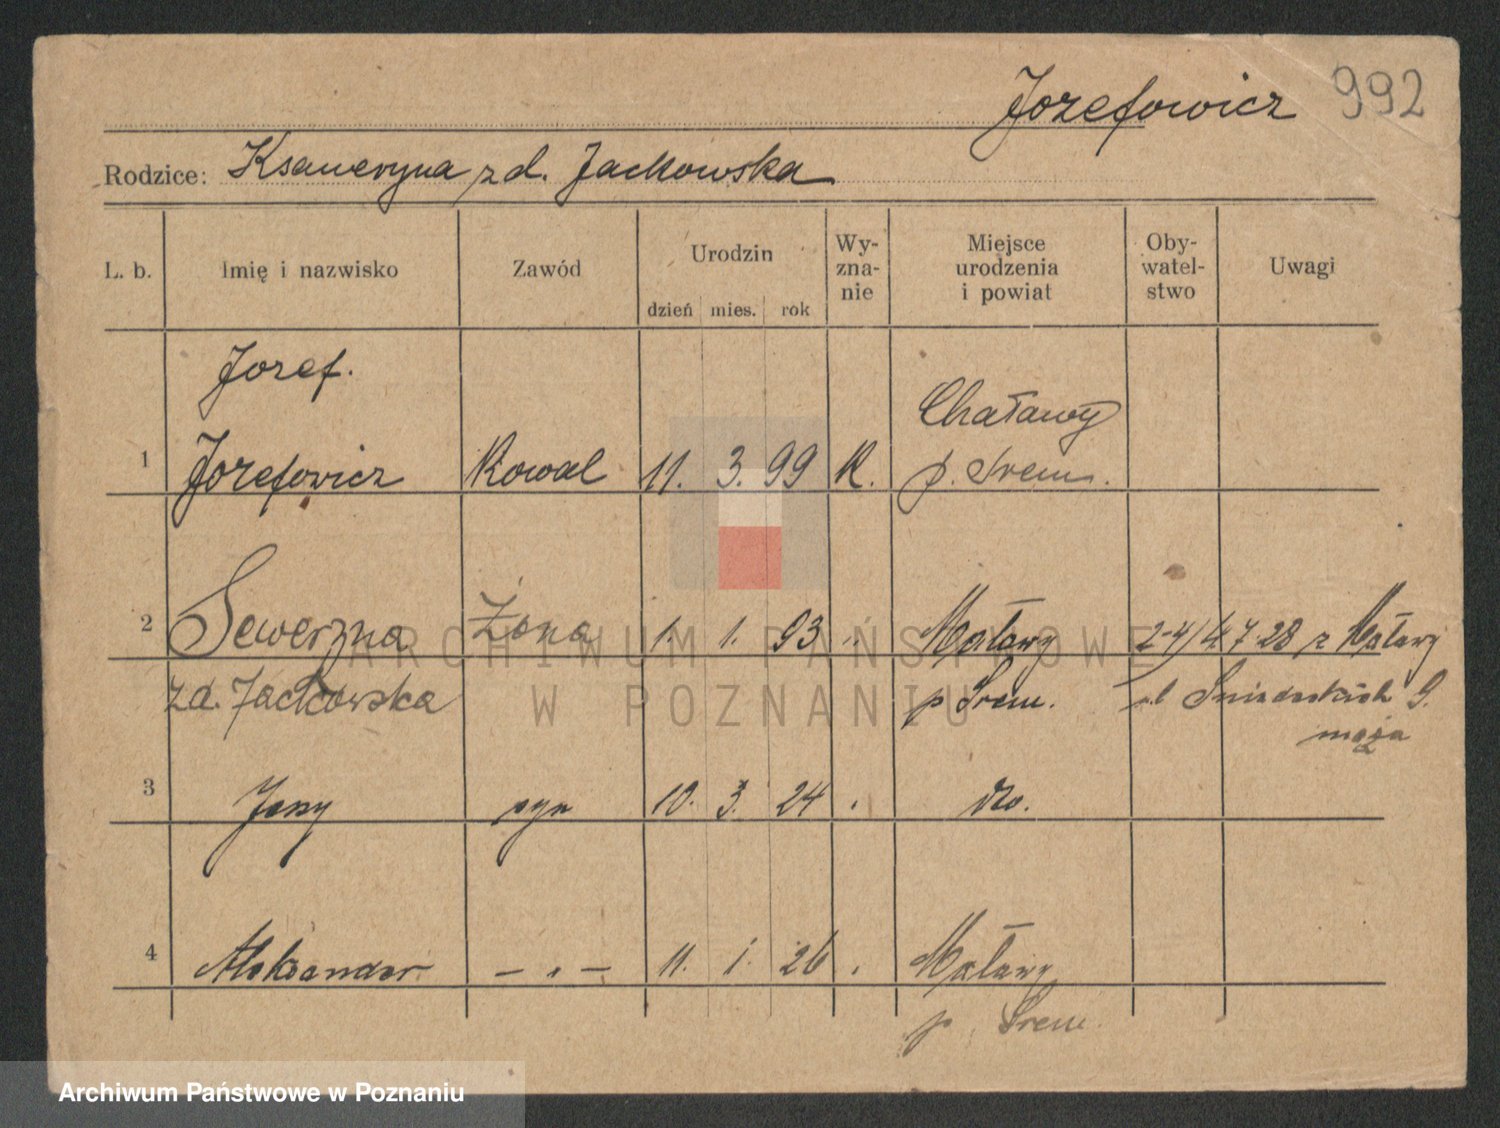 Jozefowicz 992
Rodzice: Ksaweryna zd. Jackowska
L. b. Imię i nazwisko Zawód Urodzin dzień mies. rok Wy-zna-nie Miejsce urodzenia i powiat Oby-watel-stwo Uwagi
Jozef.
1 Jozefowicz Kowal 11. 3. 99 K. Chaławy
p. Śrem.
2 Seweryna Żona 1. 1. 93 Maławy 2-4/4 7 28 z Maławy
zd. Jackowska p Śrem. męża
3 Jerzy syn 10. 3. 24 dto.
4 Aleksander — „ — 11. 1. 26 Maławy
p. Śrem.
ARCHIWUM PAŃSTWOWE
W POZNANIU
Archiwum Państwowe w Poznaniu